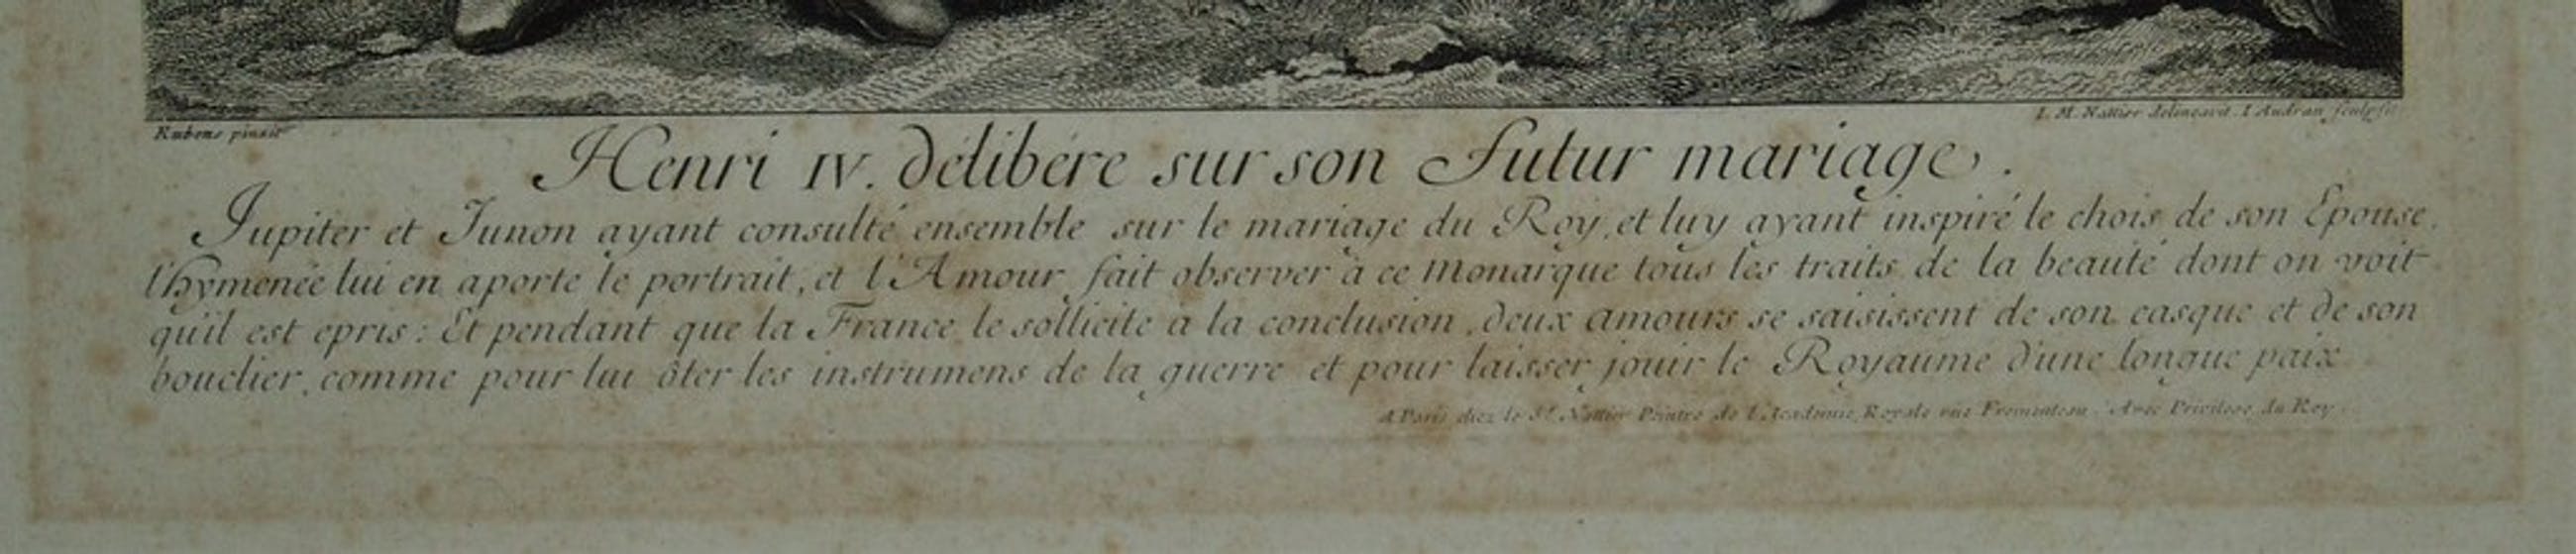 Rubens pinxit
I. M. Nattier delineavit. I Audran sculpsit
Henri IV. délibére sur son Futur mariage.
Jupiter et Junon ayant consulté ensemble sur le mariage du Roy, et luy ayant inspiré le chois de son Epouse,
l'hymenée lui en aporte le portrait, et l'Amour fait observer à ce Monarque tous les traits de la beauté dont on voit
qu'il est epris: Et pendant que la France le sollicite à la conclusion, deux amours se saisissent de son casque et de son
bouclier, comme pour lui ôter les instrumens de la guerre et pour laisser jouir le Royaume d'une longue paix
A Paris chez le Sr. Nattier Peintre de l'Academie Royale rüe Fromenteau. Avec Privilege du Roy.